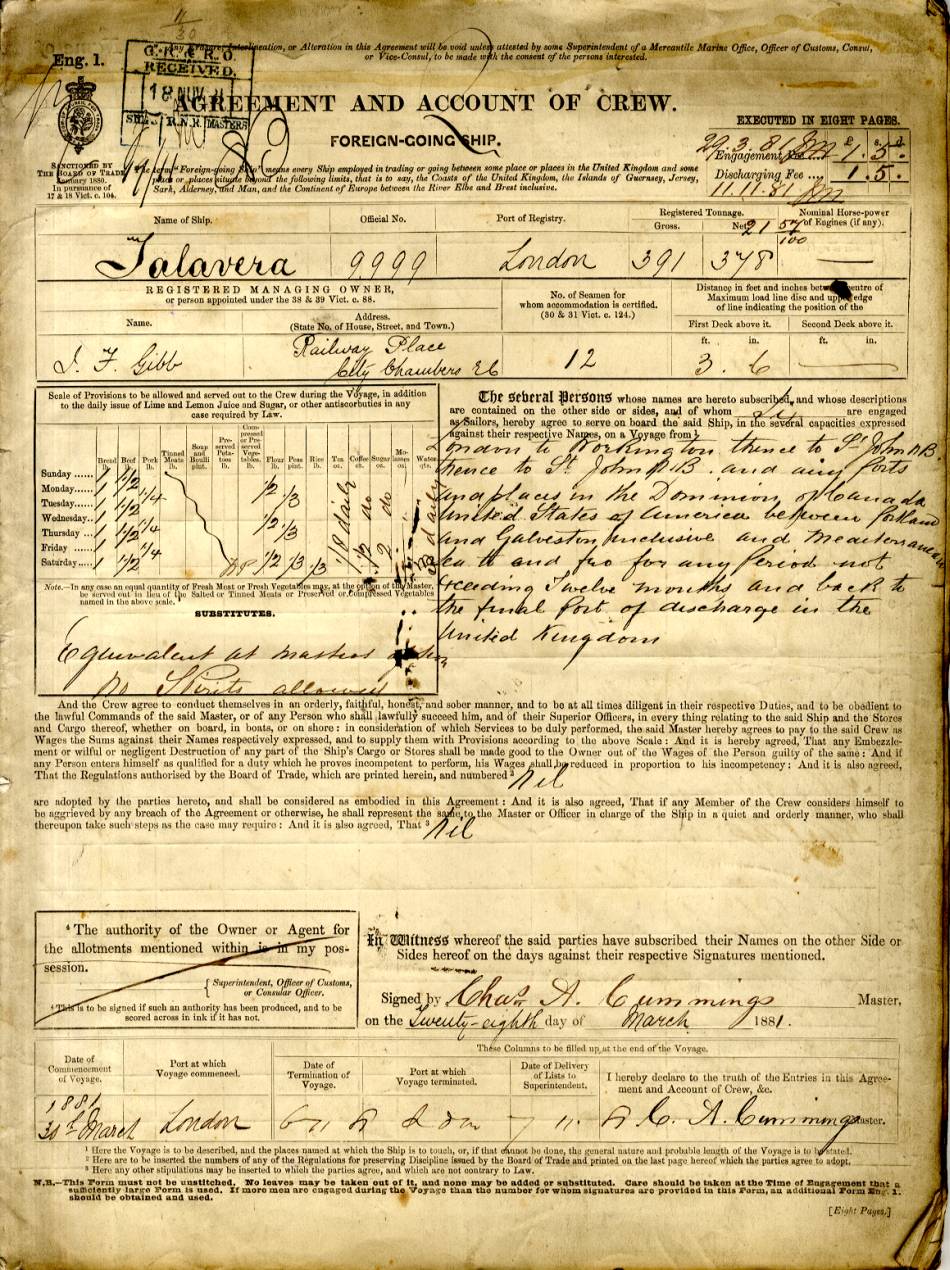 Any Erasure, Interlineation, or Alteration in this Agreement will be void unless attested by some Superintendent of a Mercantile Marine Office, Officer of Customs, Consul,
or Vice-Consul, to be made with the consent of the persons interested.
Eng. 1.
RECEIVED.
18 NOV
AGREEMENT AND ACCOUNT OF CREW.
FOREIGN-GOING SHIP.
EXECUTED IN EIGHT PAGES.
29.3.81
Engagement Fee £1. 5.
Discharging Fee .... 1. 5.
11.11.81
SANCTIONED BY
THE BOARD OF TRADE
January 1880.
In pursuance of
17 & 18 Vict. c. 104.
The term "Foreign-going Ship" means every Ship employed in trading or going between some place or places in the United Kingdom and some
place or places situate beyond the following limits, that is to say, the Coasts of the United Kingdom, the Islands of Guernsey, Jersey,
Sark, Alderney, and Man, and the Continent of Europe between the River Elbe and Brest inclusive.
Name of Ship. Official No. Port of Registry. Registered Tonnage. Nominal Horse-power
of Engines (if any).
Gross. Net 21 57/100
Talavera 9999 London 391 378
REGISTERED MANAGING OWNER,
or person appointed under the 38 & 39 Vict. c. 88.
No. of Seamen for
whom accommodation is certified.
(30 & 31 Vict. c. 124.)
Distance in feet and inches between centre of
Maximum load line disc and upper edge
of line indicating the position of the
Name. Address.
(State No. of House, Street, and Town.)
First Deck above it. Second Deck above it.
ft. in. ft. in.
J. F. Gibb Railway Place
City Chambers EC 12 3. 6
Scale of Provisions to be allowed and served out to the Crew during the Voyage, in addition
to the daily issue of Lime and Lemon Juice and Sugar, or other antiscorbutics in any
case required by Law.
Bread lb. Beef lb. Pork lb. Tinned Meats lb. Soup and Bouilli pint. Preserved Potatoes lb. Compressed or Preserved Vegetables. Flour lb. Peas pint. Rice lb. Tea oz. Coffee oz. Sugar oz. Molasses oz. Water qts.
Sunday 1 1½ ½
Monday 1 1¼ ⅓
Tuesday 1 1½
Wednesday 1 1¼ ⅓
Thursday 1 1½ ½
Friday 1 1¼ ⅓
Saturday 1 1½
1/8 daily ½ do 2 do 3 daily
Note.—In any case an equal quantity of Fresh Meat or Fresh Vegetables may, at the option of the Master,
be served out in lieu of the Salted or Tinned Meats or Preserved or Compressed Vegetables
named in the above scale.
SUBSTITUTES.
Equivalent at masters option
No Spirits allowed
The several Persons whose names are hereto subscribed, and whose descriptions
are contained on the other side or sides, and of whom are engaged
as Sailors, hereby agree to serve on board the said Ship, in the several capacities expressed
against their respective Names, on a Voyage from ¹
London to Workington thence to St John N.B.
hence to St John N B. and any ports
and places in the Dominion of Canada
United States of America between Portland
and Galveston inclusive and Mediterranean
Sea to and fro for any Period not
exceeding Twelve months and back to
the final Port of discharge in the
United Kingdom
And the Crew agree to conduct themselves in an orderly, faithful, honest, and sober manner, and to be at all times diligent in their respective Duties, and to be obedient to
the lawful Commands of the said Master, or of any Person who shall lawfully succeed him, and of their Superior Officers, in every thing relating to the said Ship and the Stores
and Cargo thereof, whether on board, in boats, or on shore : in consideration of which Services to be duly performed, the said Master hereby agrees to pay to the said Crew as
Wages the Sums against their Names respectively expressed, and to supply them with Provisions according to the above Scale : And it is hereby agreed, That any Embezzle-
ment or wilful or negligent Destruction of any part of the Ship's Cargo or Stores shall be made good to the Owner out of the Wages of the Person guilty of the same : And if
any Person enters himself as qualified for a duty which he proves incompetent to perform, his Wages shall be reduced in proportion to his incompetency : And it is also agreed,
That the Regulations authorised by the Board of Trade, which are printed herein, and numbered ² Nil
are adopted by the parties hereto, and shall be considered as embodied in this Agreement : And it is also agreed, That if any Member of the Crew considers himself to
be aggrieved by any breach of the Agreement or otherwise, he shall represent the same to the Master or Officer in charge of the Ship in a quiet and orderly manner, who shall
thereupon take such steps as the case may require : And it is also agreed, That ³ Nil
⁴ The authority of the Owner or Agent for
the allotments mentioned within is in my pos-
session.
Superintendent, Officer of Customs,
or Consular Officer.
⁴ This is to be signed if such an authority has been produced, and to be
scored across in ink if it has not.
In Witness whereof the said parties have subscribed their Names on the other Side or
Sides hereof on the days against their respective Signatures mentioned.
Signed by Chas. A. Cummings Master,
on the Twenty-eighth day of March 1881.
These Columns to be filled up at the end of the Voyage.
Date of
Commencement
of Voyage. Port at which
Voyage commenced. Date of
Termination of
Voyage. Port at which
Voyage terminated. Date of Delivery
of Lists to
Superintendent. I hereby declare to the truth of the Entries in this Agree-
ment and Account of Crew, &c.
1881
30th March London C. A. Cummings Master.
¹ Here the Voyage is to be described, and the places named at which the Ship is to touch, or, if that cannot be done, the general nature and probable length of the Voyage is to be stated.
² Here are to be inserted the numbers of any of the Regulations for preserving Discipline issued by the Board of Trade and printed on the last page hereof which the parties agree to adopt.
³ Here any other stipulations may be inserted to which the parties agree, and which are not contrary to Law.
N.B.—This Form must not be unstitched. No leaves may be taken out of it, and none may be added or substituted. Care should be taken at the Time of Engagement that a
sufficiently large Form is used. If more men are engaged during the Voyage than the number for whom signatures are provided in this Form, an additional Form Eng. 1.
should be obtained and used.
[Eight Pages.]